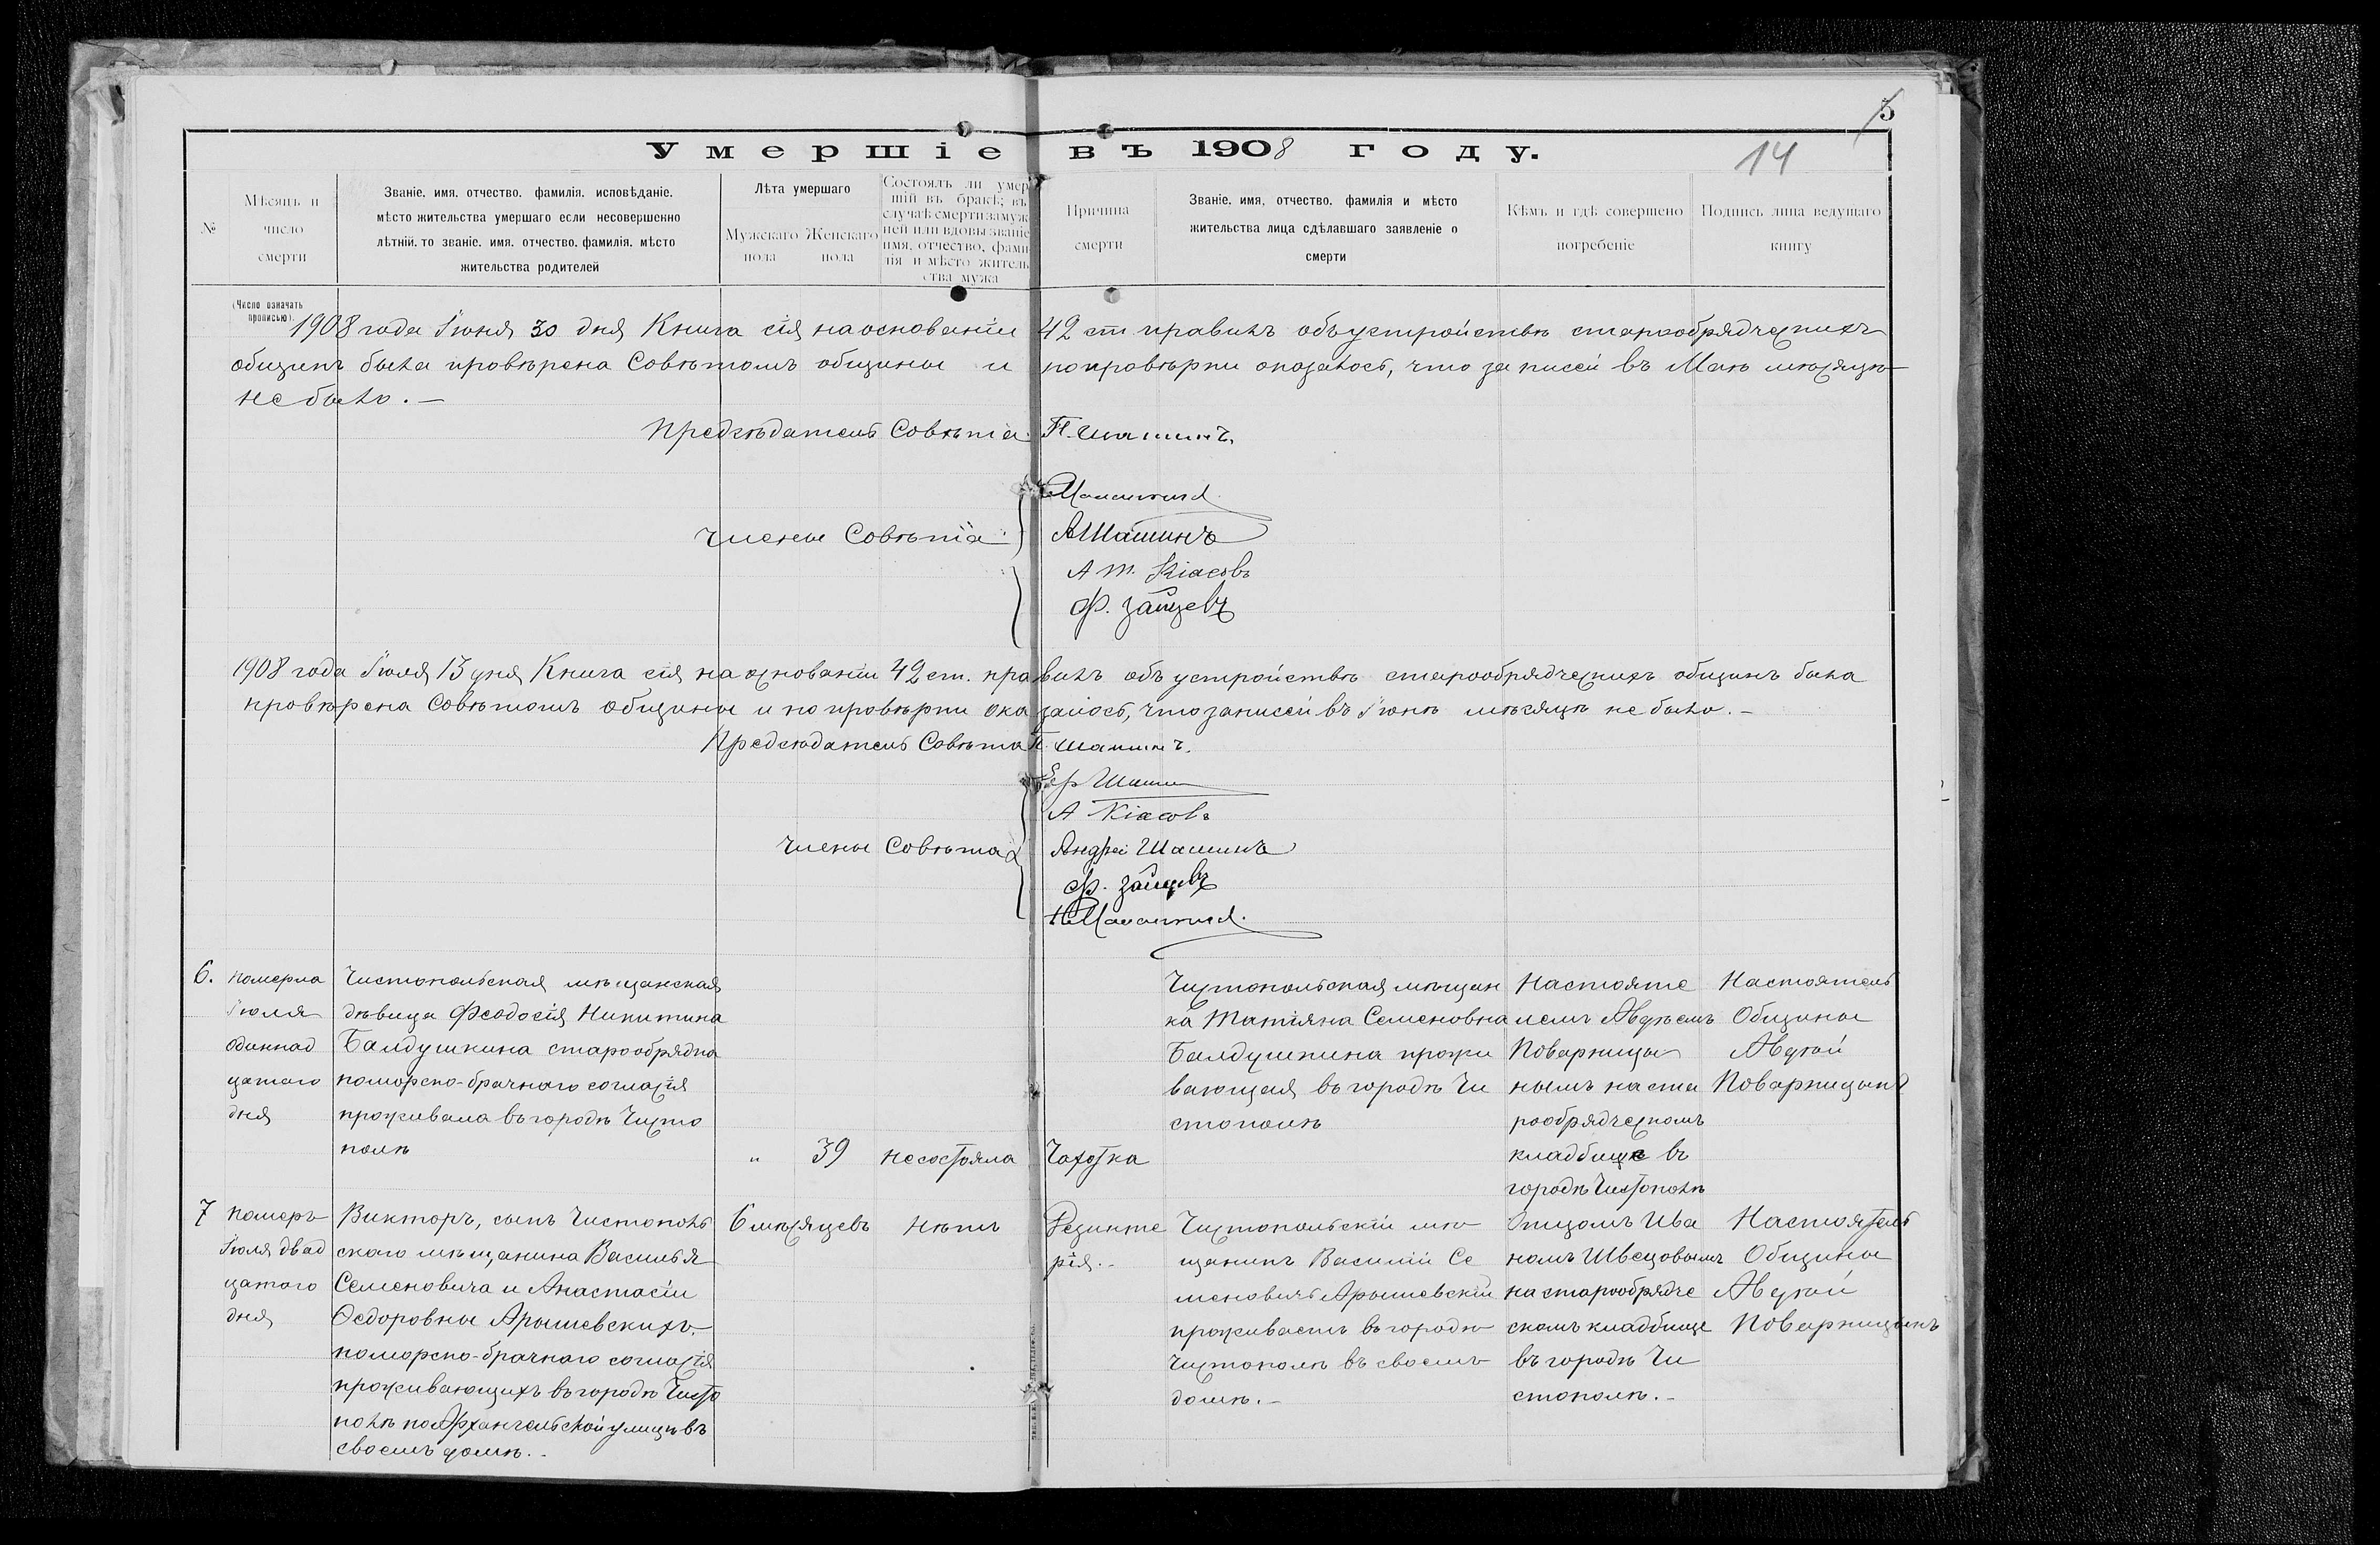 5
14
Умершіе въ 1908 году.
№
Мѣсяцъ и
число
смерти
(Число означать
прописью).
Званіе. имя. отчество. фамилія. исповѣданіе.
мѣсто жительства умершаго если несовершенно
лѣтній. то званіе. имя. отчество. фамилія. мѣсто
жительства родителей
Лѣта умершаго
Мужскаго
пола
Женскаго
пола
Состоялъ ли умер
шій въ бракѣ; въ
случаѣ смерти замуж
ней или вдовы званіе
имя. отчество, фами
лія и мѣсто житель
ства мужа
Причина
смерти
Званіе. имя, отчество. фамилія и мѣсто
жительства лица сдѣлавшаго заявленіе о
смерти
Кѣмъ и гдѣ совершено
погребеніе
Подпись лица ведущаго
книгу
1908 года Іюня 30 дня Книга сія на основаніи 42 ст правилъ объ устройствѣ старообрядческихъ
общинъ была провѣрена Совѣтомъ общины и по провѣрки оказалось, что записей въ Маѣ мѣсяцѣ
не было. —
Предсѣдатель Совѣта П. Шашинъ.
Члены Совѣта
АШашинъ
А т. Кіасовъ
Ф. Зайцевъ
1908 года Іюля 13 дня Книга сія на основаніи 42 ст. правилъ объ устройствѣ старообрядческихъ общинъ была
провѣрена Совѣтомъ общины и по провѣрки оказалось, что записей въ Іюнѣ мѣсяцѣ не было. —
Предсѣдатель Совѣта П. Шашинъ.
Члены Совѣта
А Кіасовъ
Андрей Шашинъ
Ф. Зайцевъ
6.
Померла
Іюля
одиннад
цатаго
дня
Чистопольская мѣщанская
дѣвица Феодосія Никитина
Балдушкина старообрядка
поморско-брачнаго согласія
проживала въ городѣ Чисто
полѣ
„
39
не состояла
Чахотка
Чистопольская мѣщан
ка Татіяна Семеновна
Балдушкина прожи
вающая въ городѣ Чи
стополѣ
Настояте
лемъ Авдѣемъ
Поварницы
нымъ на ста
рообрядческомъ
кладбище въ
городѣ Чистополѣ
Настоятель
Общины
Авдѣй
Поварницынъ
7
Померъ
Іюля двад
цатаго
дня
Викторъ, сынъ Чистополь
скаго мѣщанина Василья
Семеновича и Анастасіи
Ѳедоровны Арышевскихъ
поморско-брачнаго согласія
проживающихъ въ городѣ Чисто
полѣ по Архангельской улицѣ въ
своемъ домѣ. -
6 мѣсяцевъ
нѣтъ
Дезинте
рія. -
Чистопольскій мѣ
щанинъ Василій Се
меновичъ Арышевскій
проживаетъ въ городѣ
Чистополѣ въ своемъ
домѣ. -
Отцомъ Ива
номъ Швецовымъ
на старообрядче
скомъ кладбище
въ городѣ Чи
стополѣ. -
Настоятель
Общины
Авдѣй
Поварницынъ